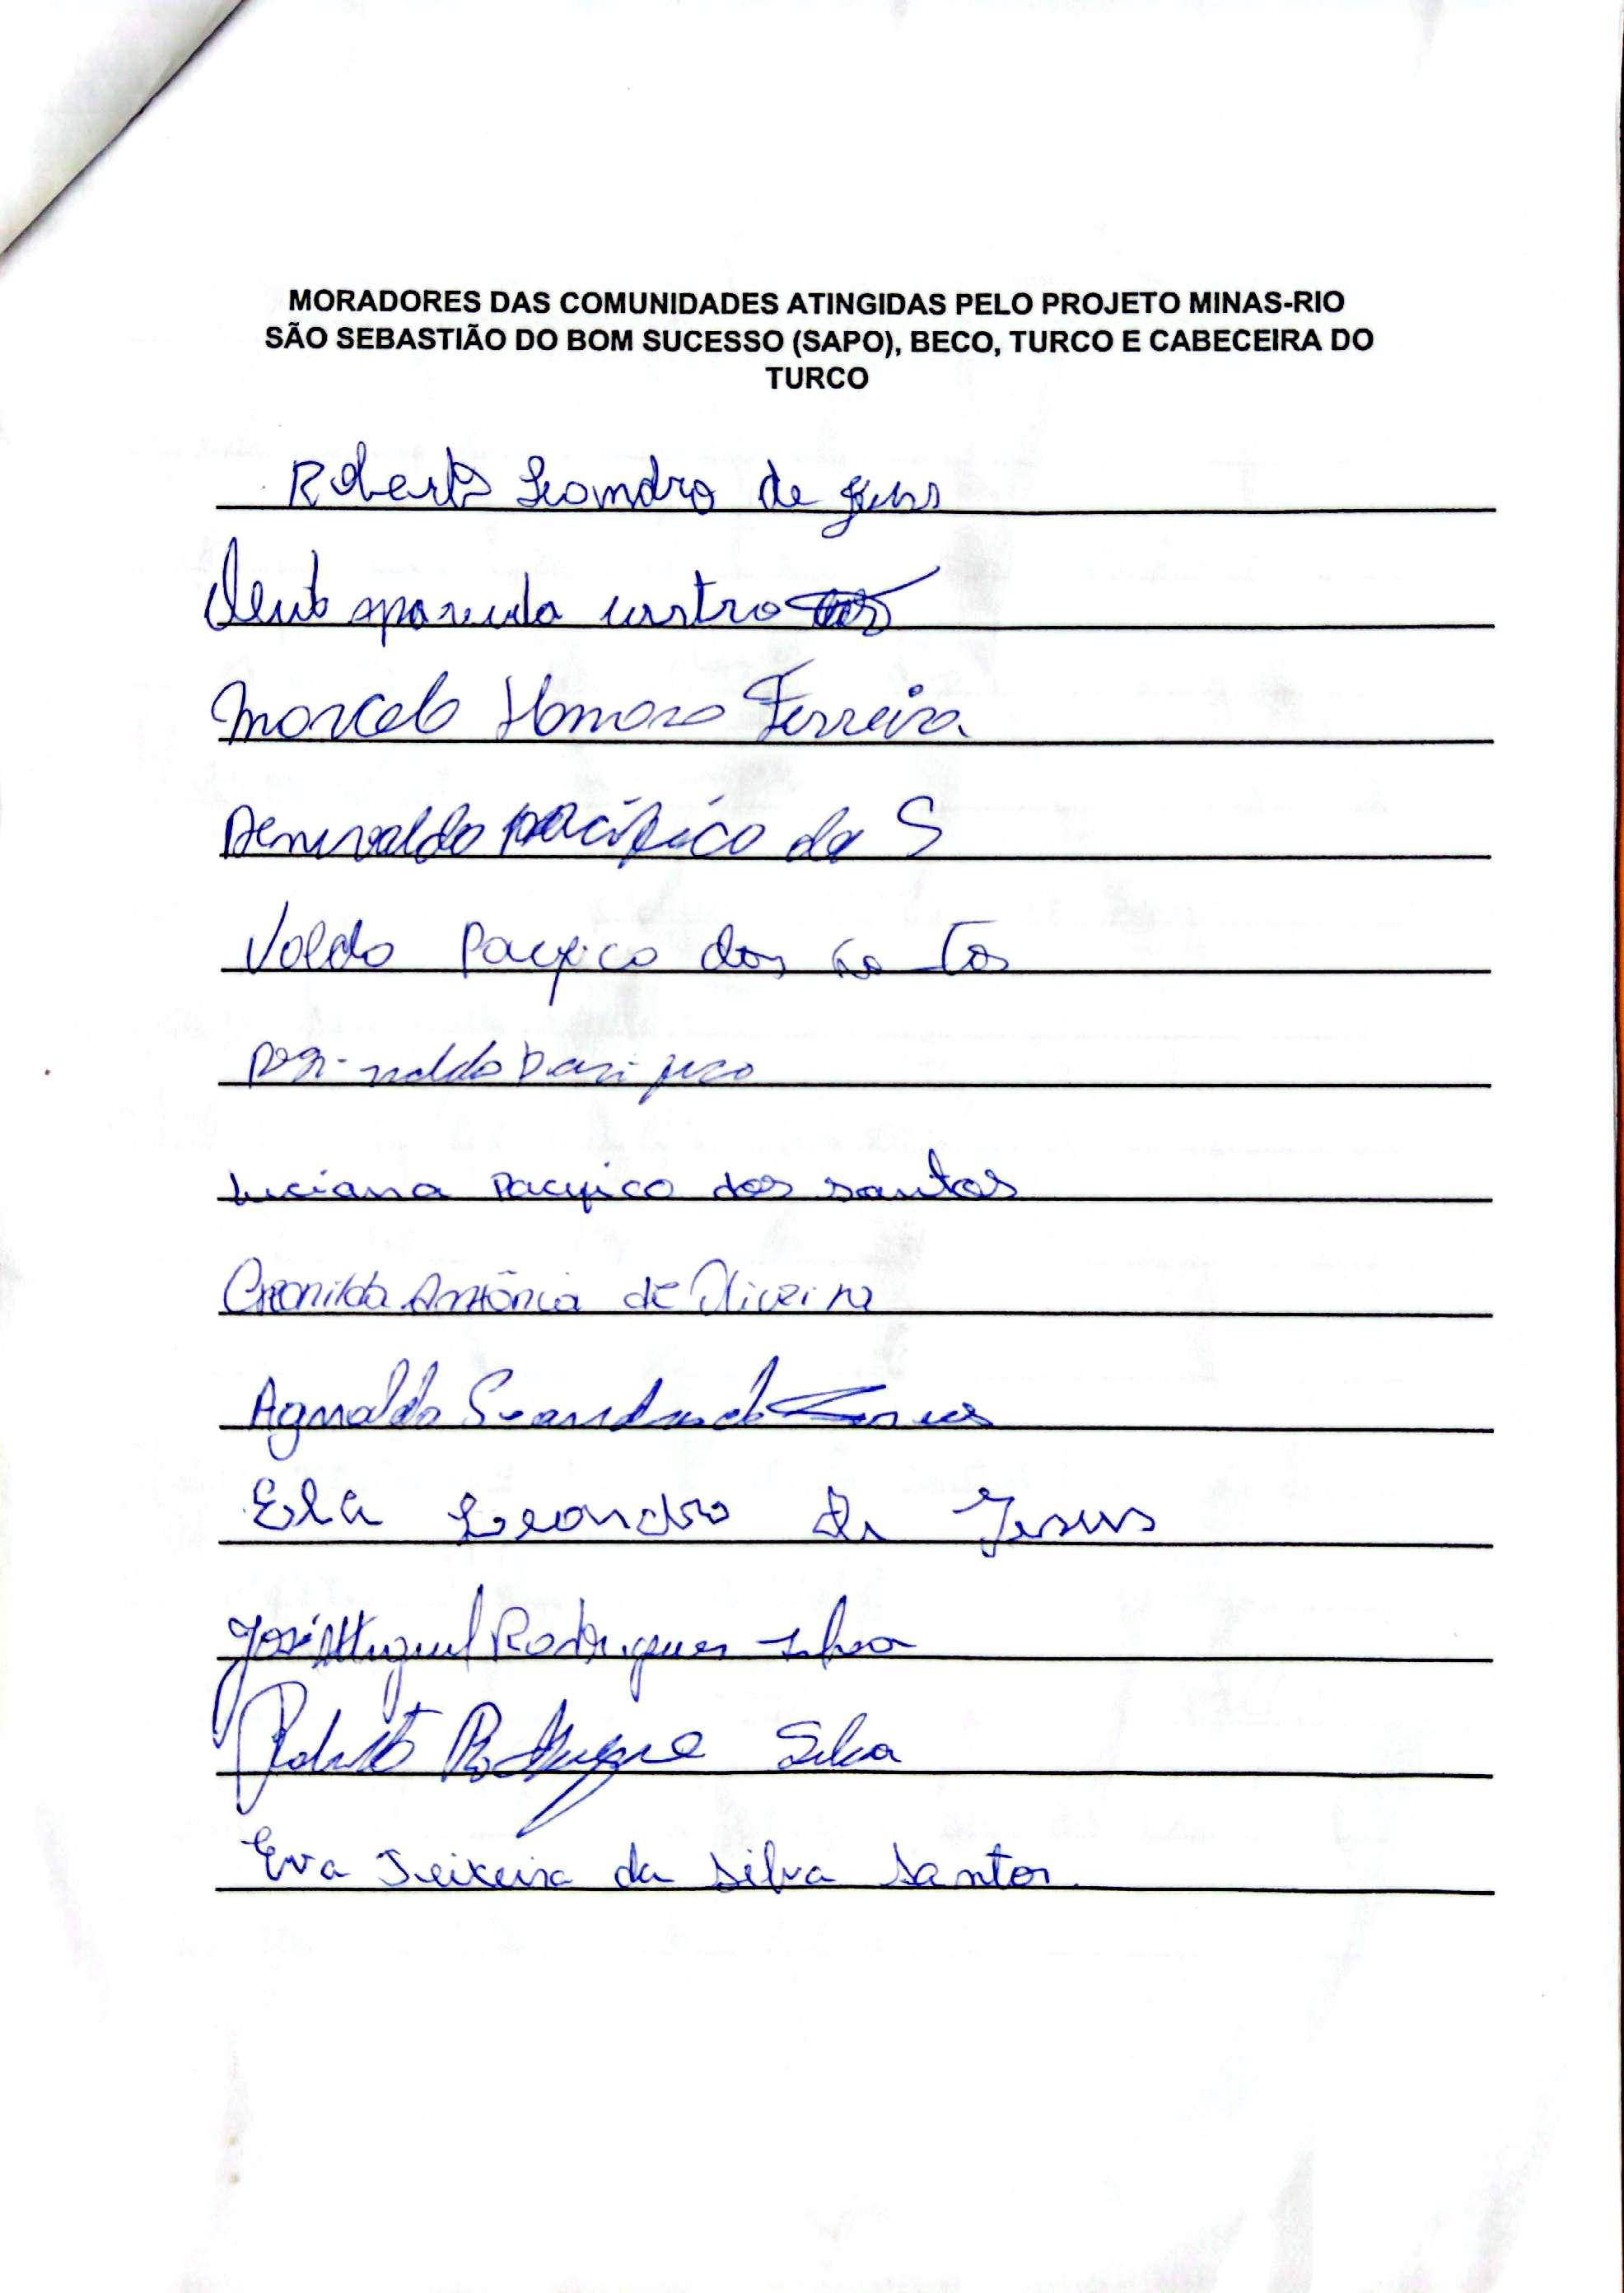 MORADORES DAS COMUNIDADES ATINGIDAS PELO PROJETO MINAS-RIO
SÃO SEBASTIÃO DO BOM SUCESSO (SAPO), BECO, TURCO E CABECEIRA DO
TURCO
Roberto Leandro de Jesus
aparecida castro
Marcelo Ferreira
pacífico da S
Valdo Pacifico dos
Luciana Pacifico dos santos
Antônia de Oliveira
Agnaldo
Leandro de Jesus
José Miguel Rodrigues silva
Silva
Eva Teixeira da Silva Santos